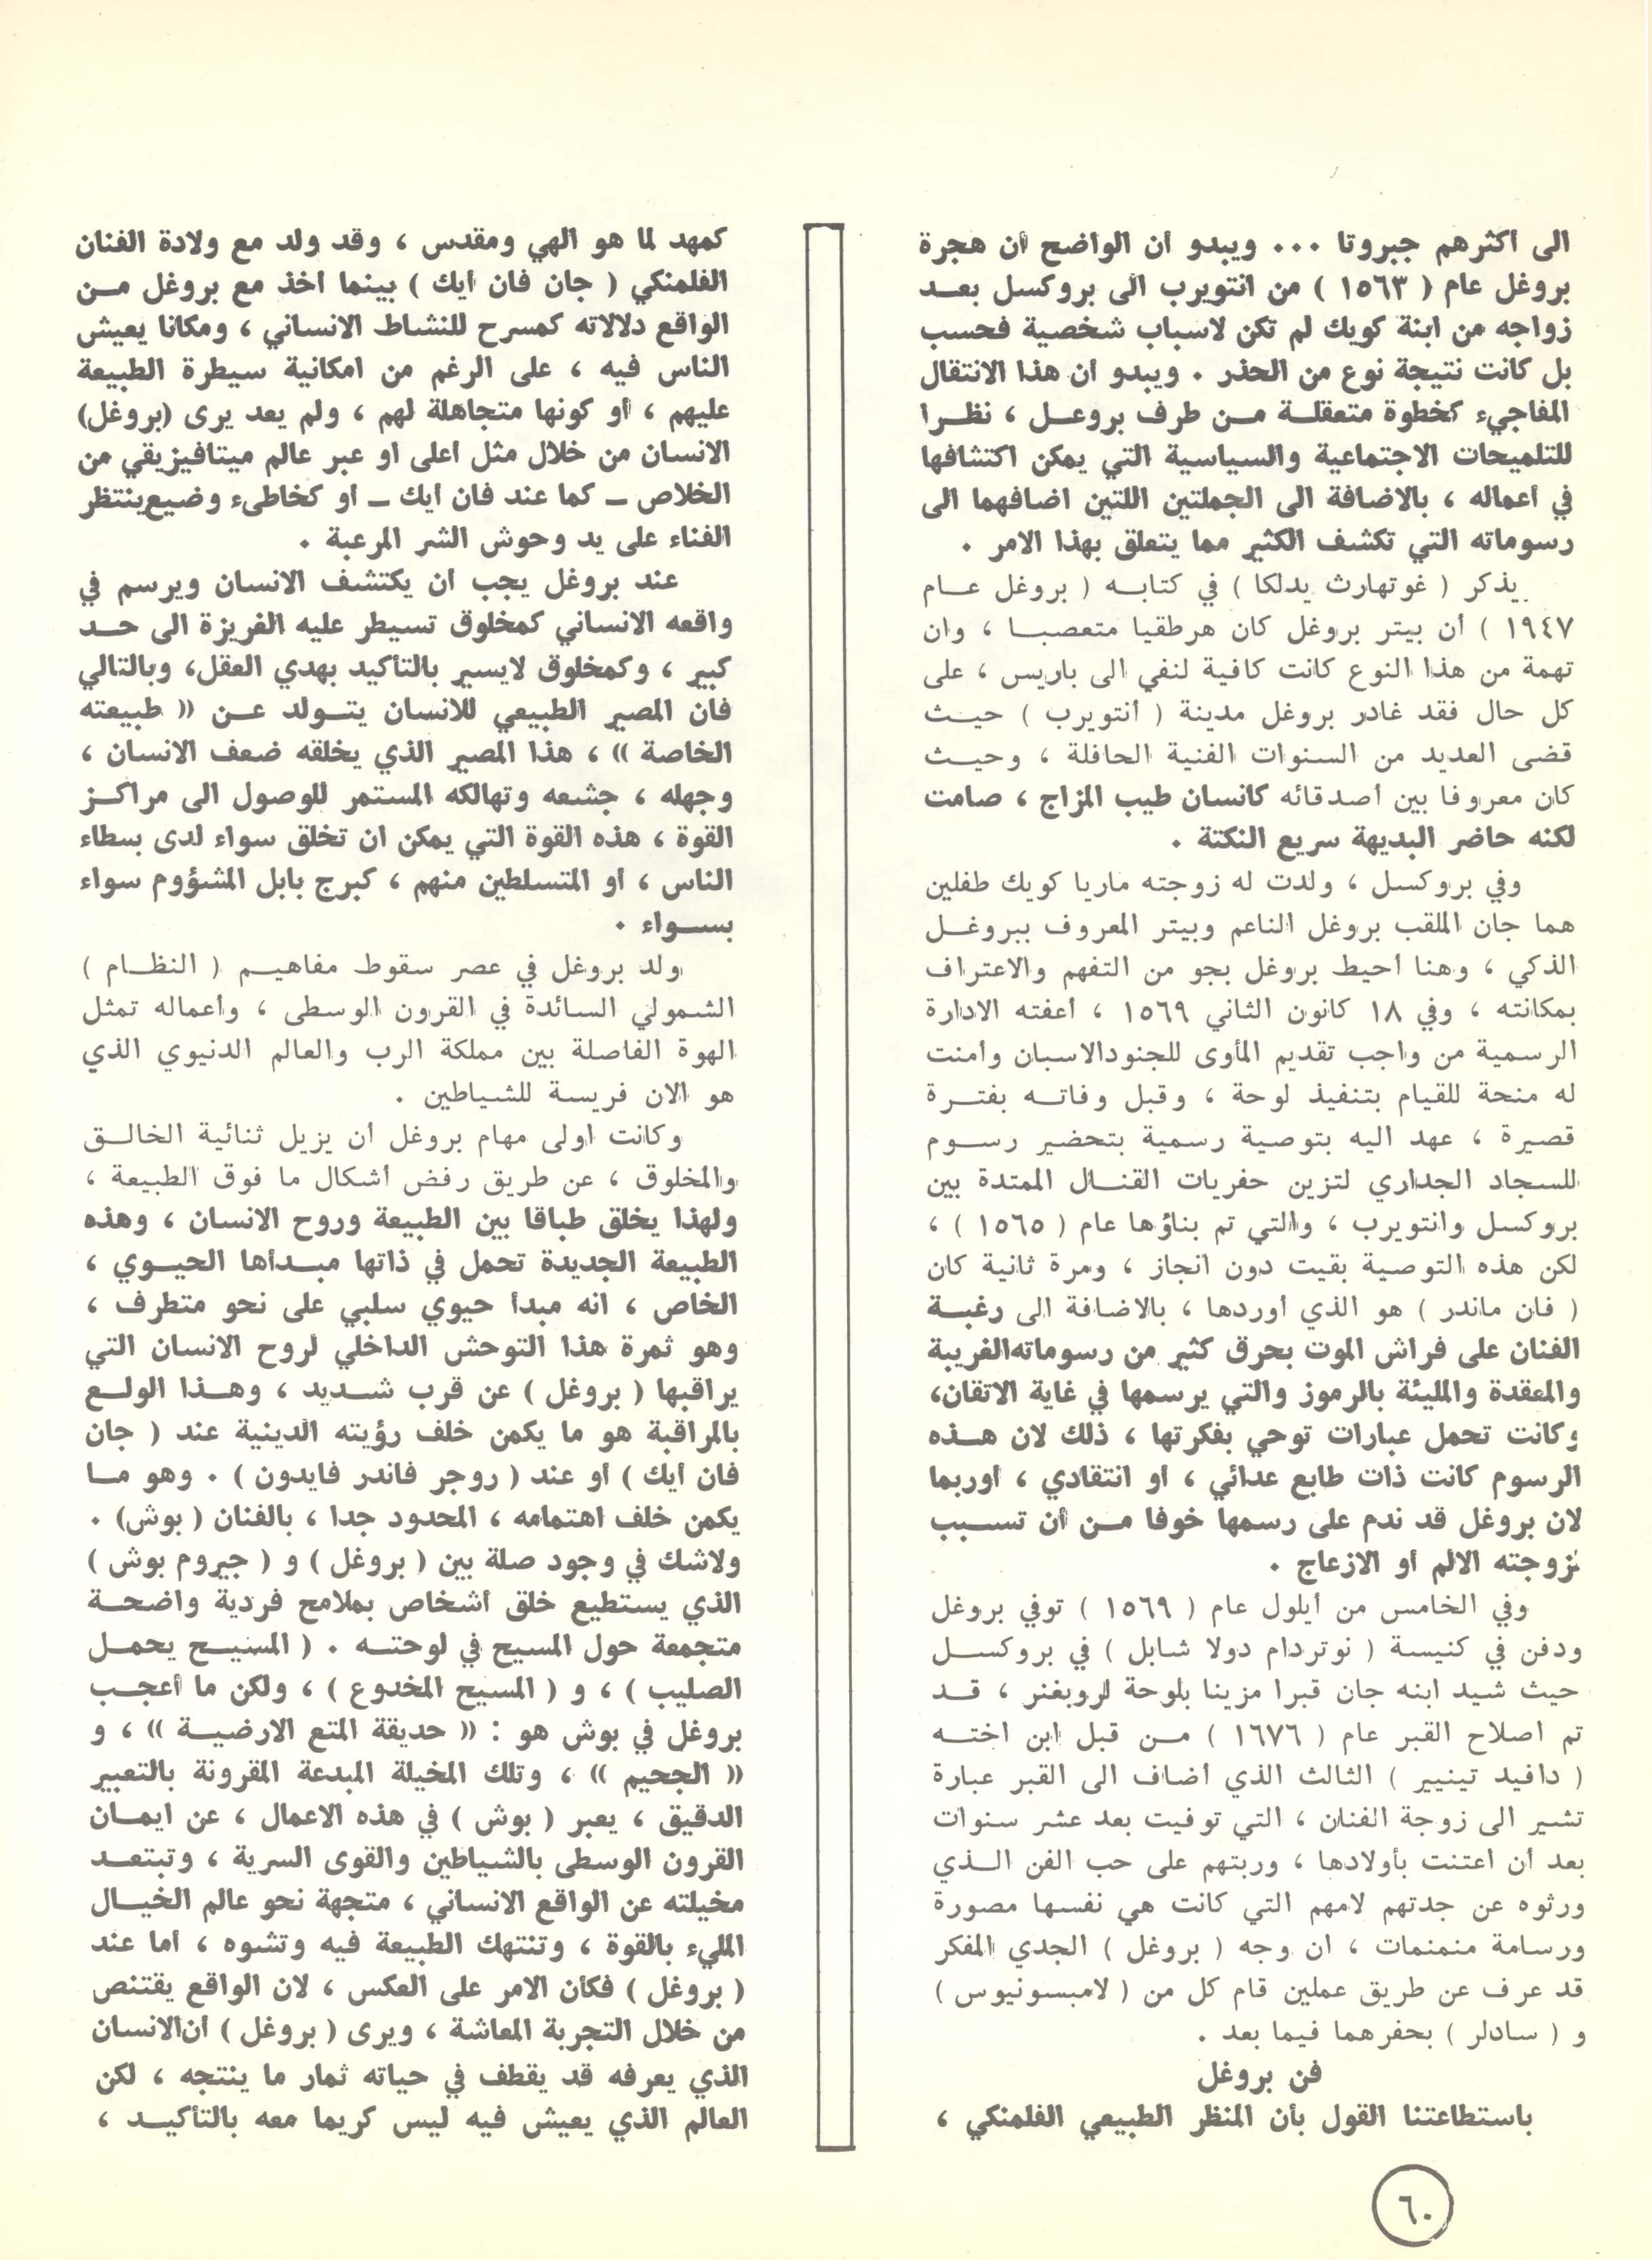 الى أكثرهم جبروتا ... ويبدو أن الواضح أن هجرة
بروغل عام ( ١٥٦٣ ) من انتويرب الى بروكسل بعـد
زواجه من ابنة كويك لم تكن لاسباب شخصية فحسب
بل كانت نتيجة نوع من الحذر . ويبدو أن هذا الانتقال
المفاجيء كخطوة متعقلـة مـن طرف بروعـل ، نظـرا
للتلميحات الاجتماعية والسياسية التي يمكن اكتشافها
في أعماله ، بالاضافة الى الجملتين اللتين اضافهما الى
رسوماته التي تكشف الكثير مما يتعلق بهذا الامر .
يذكر ( غوتهارث يدلكا ) في كتابـه ( بروغل عـام
١٩٤٧ ) أن بيتر بروغل كان هرطقيا متعصبـا ، وان
تهمة من هذا النوع كانت كافية لنفي الى باريس ، على
كل حال فقد غادر بروغل مدينة ( أنتويرب ) حيـث
قضى العديد من السنوات الفنية الحافلة ، وحيـث
كان معروفا بين أصدقائه كانسان طيب المزاج ، صامت
لكنه حاضر البديهة سريع النكتة .
وفي بروكسل ، ولدت له زوجته ماريا كويك طفلين
هما جان الملقب بروغل الناعم وبيتر المعروف ببروغـل
الذكي ، وهنا أحيط بروغل بجو من التفهم والاعتراف
بمكانته ، وفي ١٨ كانون الثاني ١٥٦٩ ، أعفته الادارة
الرسمية من واجب تقديم المأوى للجنودالاسبان وأمنت
له منحة للقيام بتنفيذ لوحة ، وقبل وفاتـه بفتـرة
قصيرة ، عهد اليه بتوصية رسمية بتحضير رسـوم
للسجاد الجداري لتزين حفريات القنـال الممتدة بين
بروكسل وانتويرب ، والتي تم بناؤها عام ( ١٥٦٥ ) ،
لكن هذه التوصية بقيت دون انجاز ، ومرة ثانية كان
( فان ماندر ) هو الذي أوردها ، بالاضافة الى رغبـة
الفنان على فراش الموت بحرق كثير من رسوماته الغريبة
والمعقدة والمليئة بالرموز والتي يرسمها في غاية الاتقان،
وكانت تحمل عبارات توحي بفكرتها ، ذلك لان هـذه
الرسوم كانت ذات طابع عدائي ، أو انتقادي ، أوربما
لان بروغل قد ندم على رسمها خوفا مـن أن تسـبب
لزوجته الالم أو الازعاج .
وفي الخامس من أيلول عام ( ١٥٦٩ ) توفي بروغل
ودفن في كنيسة ( نوتردام دولا شابل ) في بروكسـل
حيث شيد ابنه جان قبرا مزينا بلوحة لروبغنر ، قـد
تم اصلاح القبر عام ( ١٦٧٦ ) مـن قبل ابن اختـه
( دافيد تينيير ) الثالث الذي أضاف الى القبر عبارة
تشير الى زوجة الفنان ، التي توفيت بعد عشر سنوات
بعد أن اعتنت بأولادها ، وربتهم على حب الفن الـذي
ورثوه عن جدتهم لامهم التي كانت هي نفسها مصورة
ورسامة منمنمات ، ان وجه ( بروغل ) الجدي المفكر
قد عرف عن طريق عملين قام كل من ( لامبسونيوس )
و ( سادلر ) بحفرهما فيما بعد .
فن بروغل
باستطاعتنا القول بأن المنظر الطبيعي الفلمنكي ،
كمهد لما هو الهي ومقدس ، وقد ولد مع ولادة الفنان
الفلمنكي ( جان فان أيك ) بينما أخذ مع بروغل مـن
الواقع دلالاته كمسرح للنشاط الانساني ، ومكانا يعيش
الناس فيه ، على الرغم من امكانية سيطرة الطبيعة
عليهم ، أو كونها متجاهلة لهم ، ولم يعد يرى (بروغل)
الانسان من خلال مثل أعلى أو عبر عالم ميتافيزيقي من
الخلاص ـ كما عند فان أيك ـ أو كخاطىء وضيع ينتظر
الفناء على يد وحوش الشر المرعبة .
عند بروغل يجب أن يكتشف الانسان ويرسم في
واقعه الانساني كمخلوق تسيطر عليه الغريزة الى حـد
كبير ، وكمخلوق لايسير بالتأكيد بهدي العقل، وبالتالي
فان المصير الطبيعي للانسان يتـولد عـن « طبيعته
الخاصة » ، هذا المصير الذي يخلقه ضعف الانسان ،
وجهله ، جشعه وتهالكه المستمر للوصول الى مراكـز
القوة ، هذه القوة التي يمكن ان تخلق سواء لدى بسطاء
الناس ، أو المتسلطين منهم ، كبرج بابل المشؤوم سواء
بسـواء .
ولد بروغل في عصر سقوط مفاهيـم ( النظـام )
الشمولي السائدة في القرون الوسطى ، وأعماله تمثل
الهوة الفاصلة بين مملكة الرب والعالم الدنيوي الذي
هو الان فريسة للشياطين .
وكانت أولى مهام بروغل أن يزيل ثنائية الخالـق
والمخلوق ، عن طريق رفض أشكال ما فوق الطبيعة ،
ولهذا يخلق طباقا بين الطبيعة وروح الانسان ، وهذه
الطبيعة الجديدة تحمل في ذاتها مبـدأها الحيـوي ،
الخاص ، انه مبدأ حيوي سلبي على نحو متطرف ،
وهو ثمرة هذا التوحش الداخلي لروح الانسان التي
يراقبها ( بروغل ) عن قرب شـديد ، وهـذا الولـع
بالمراقبة هو ما يكمن خلف رؤيته الدينية عند ( جان
فان أيك ) أو عند ( روجر فاندر فايدون ) . وهو مـا
يكمن خلف اهتمامه ، المحدود جدا ، بالفنان ( بوش) .
ولاشك في وجود صلة بين ( بروغل ) و ( جيروم بوش )
الذي يستطيع خلق أشخاص بملامح فردية واضحـة
متجمعة حول المسيح في لوحتـه . ( المسيـح يحمـل
الصليب ) ، و ( المسيح المخدوع ) ، ولكن ما أعجـب
بروغل في بوش هو : « حديقة المتع الارضيـة » ، و
« الجحيم » ، وتلك المخيلة المبدعة المقرونة بالتعبير
الدقيق ، يعبر ( بوش ) في هذه الاعمال ، عن ايمـان
القرون الوسطى بالشياطين والقوى السرية ، وتبتعـد
مخيلته عن الواقع الانساني ، متجهة نحو عالم الخيـال
المليء بالقوة ، وتنتهك الطبيعة فيه وتشوه ، أما عند
( بروغل ) فكأن الامر على العكس ، لان الواقع يقتنص
من خلال التجربة المعاشة ، ويرى ( بروغل ) أن الانسان
الذي يعرفه قد يقطف في حياته ثمار ما ينتجه ، لكن
العالم الذي يعيش فيه ليس كريما معه بالتأكيـد ،
٦٠